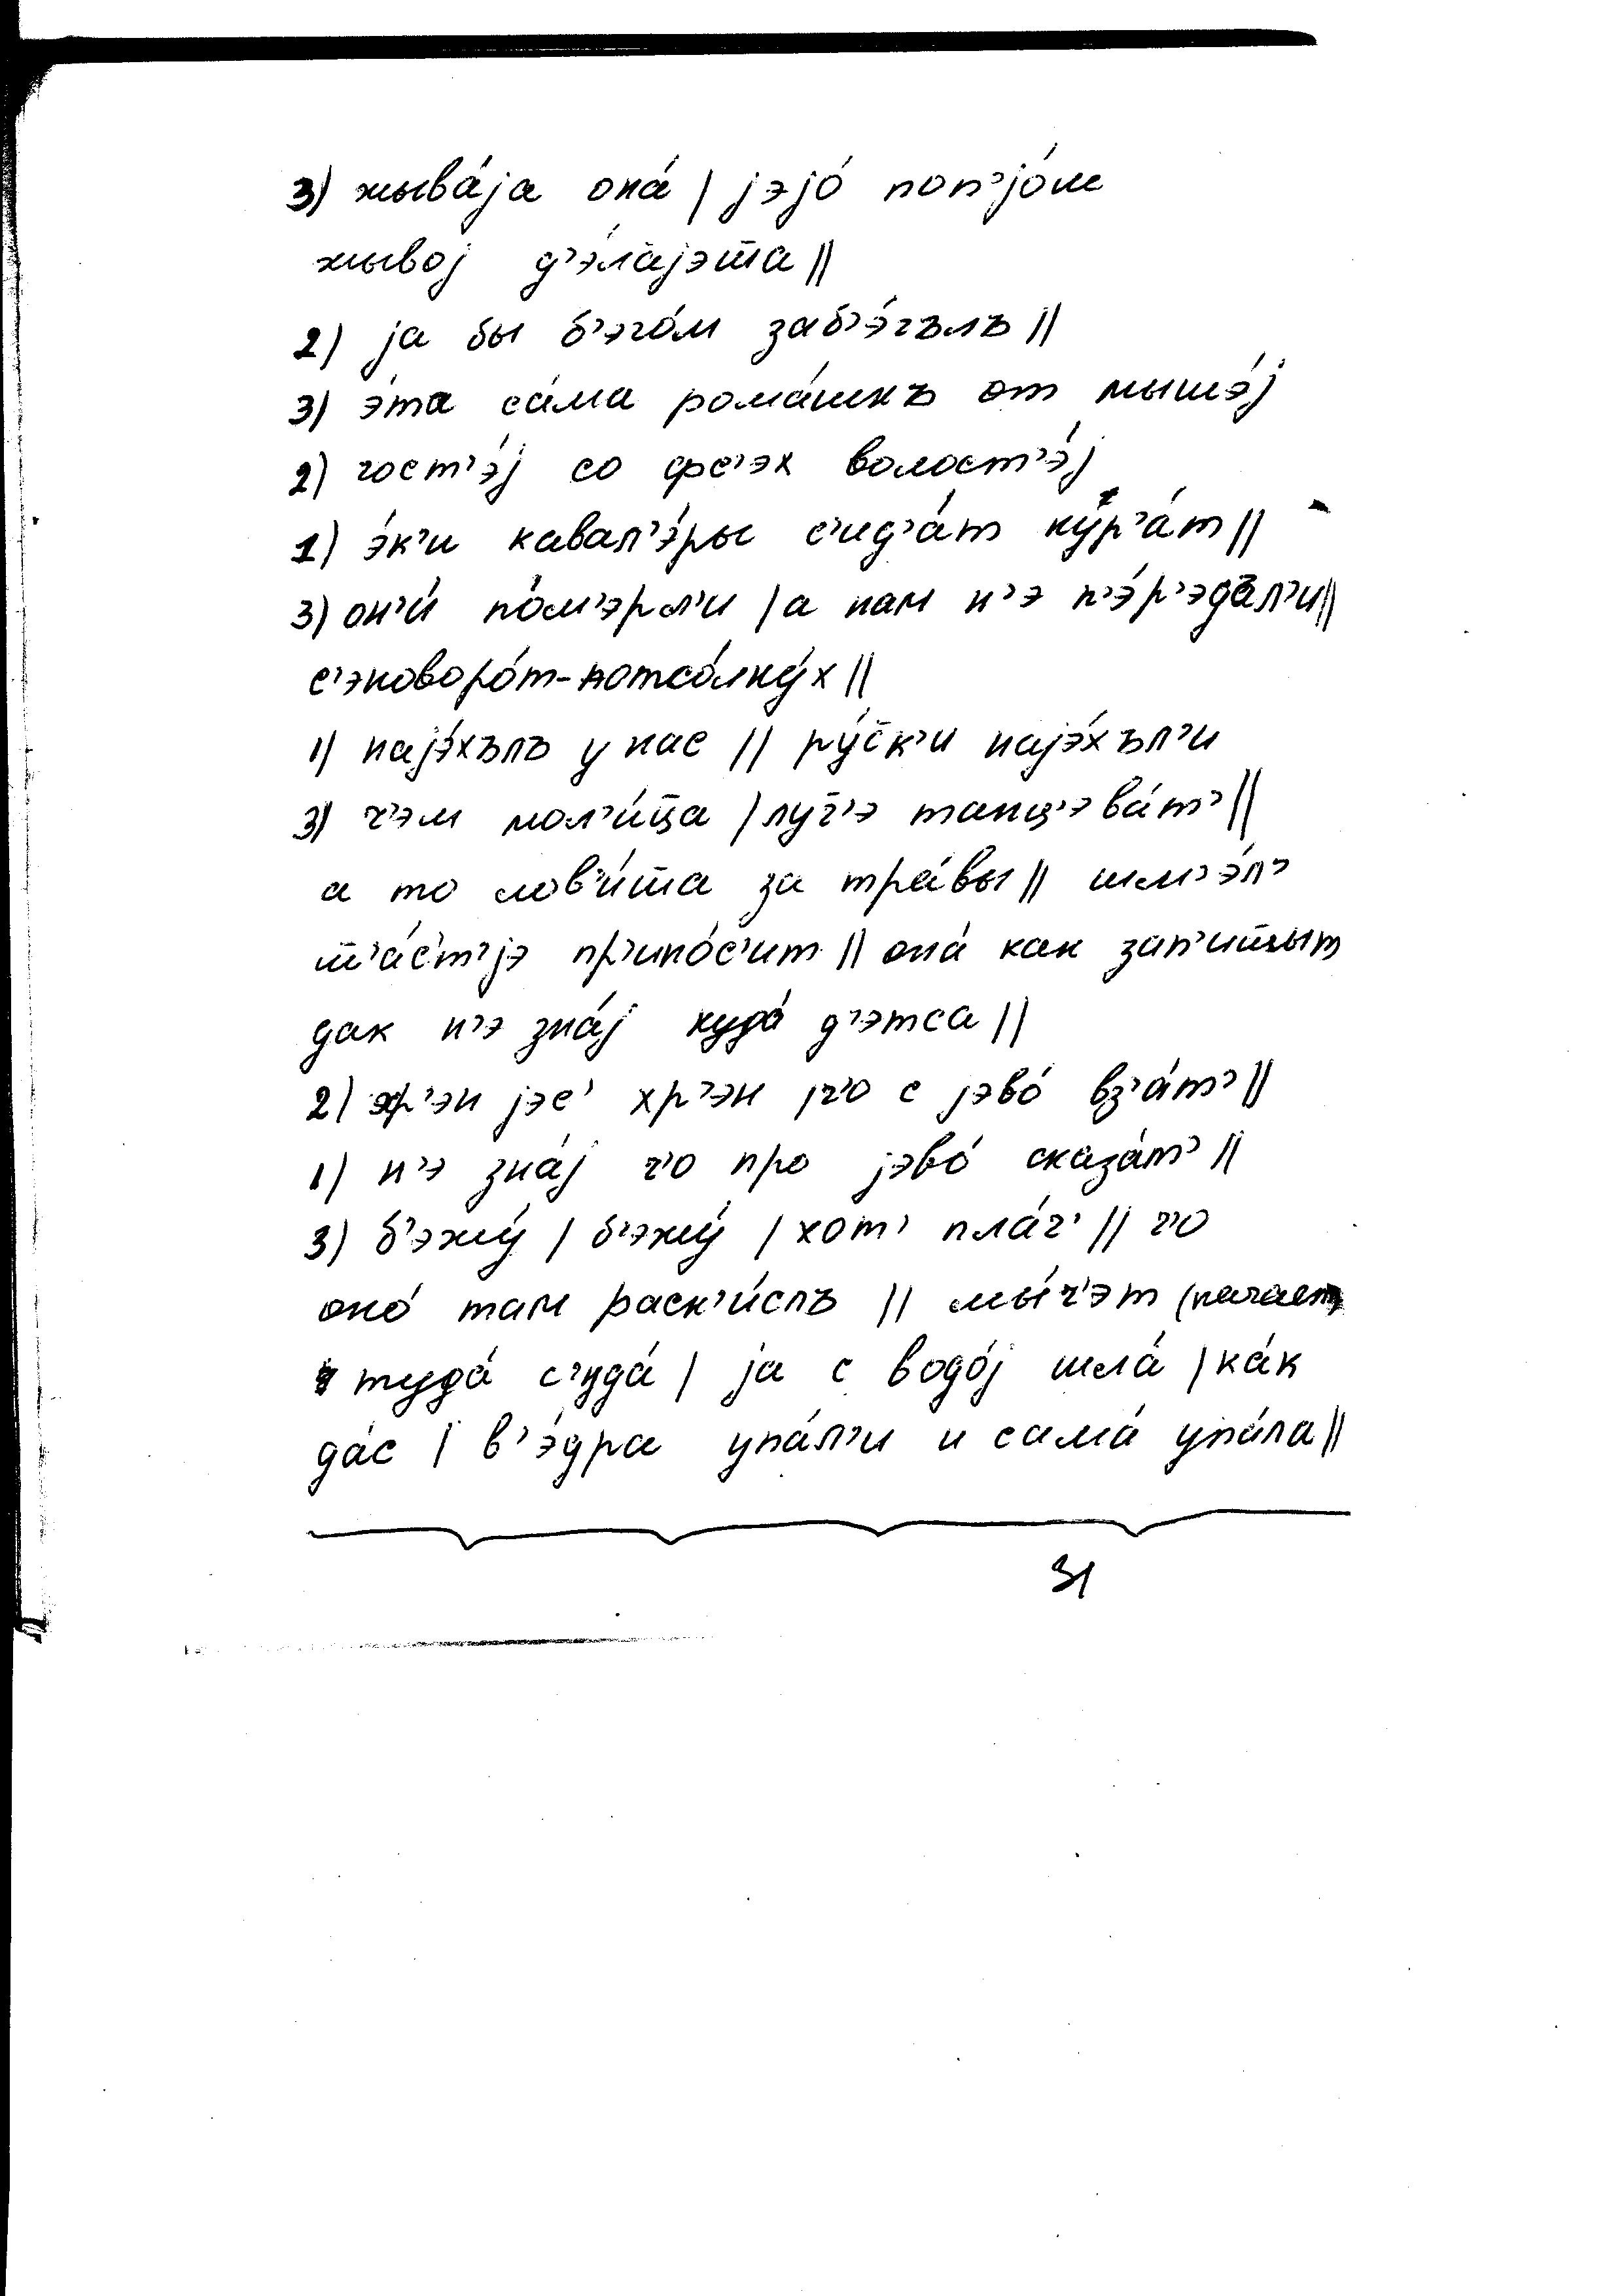 3) жыва́jа она́ | jэjо́ поп'jо́м
жывоj д'э́лаjэт̄а ||
2) jа бы б'эго́м заб'э́гълъ ||
3) э́та са́ма рома́шкъ от мышэ́j
2) гост'э́j со фс'эх волост'э́j
1) э́к'и кавал'э́ры с'ид'а́т ку́р'а́т ||
3) он'и́ по́м'эрл'и | а нам н'э п'э́р'эда́л'и ||
с'эноворо́т-потсо́лну́х ||
1) наjэ́хълъ у нас || ру́с̄к'и наjэ́хъл'и
3) ч'эм мол'и́ц̄а | луч̄'э танц'эва́т' ||
а то лов'и́т̄а за тра́вы || шм'э́л'
ш̄'а́с'т'jэ пр'ино́с'ит || она́ как зап'ищыт
дак н'э зна́j куда́ д'э́тса ||
2) хр'эн jэс' хр'эн | ч'о с jэво́ вз'а́т' ||
1) н'э зна́j ч'о про jэво́ сказа́т' ||
3) б'эжу́ | б'эжу́ | хот' пла́ч' || ч'о
оно́ там раск'и́слъ || мы́ч'эт (качает)
туда́ с'уда́ | jа с водо́j шла́ | ка́к
да́с | в'э́дра упа́л'и и сама́ упа́ла ||
31